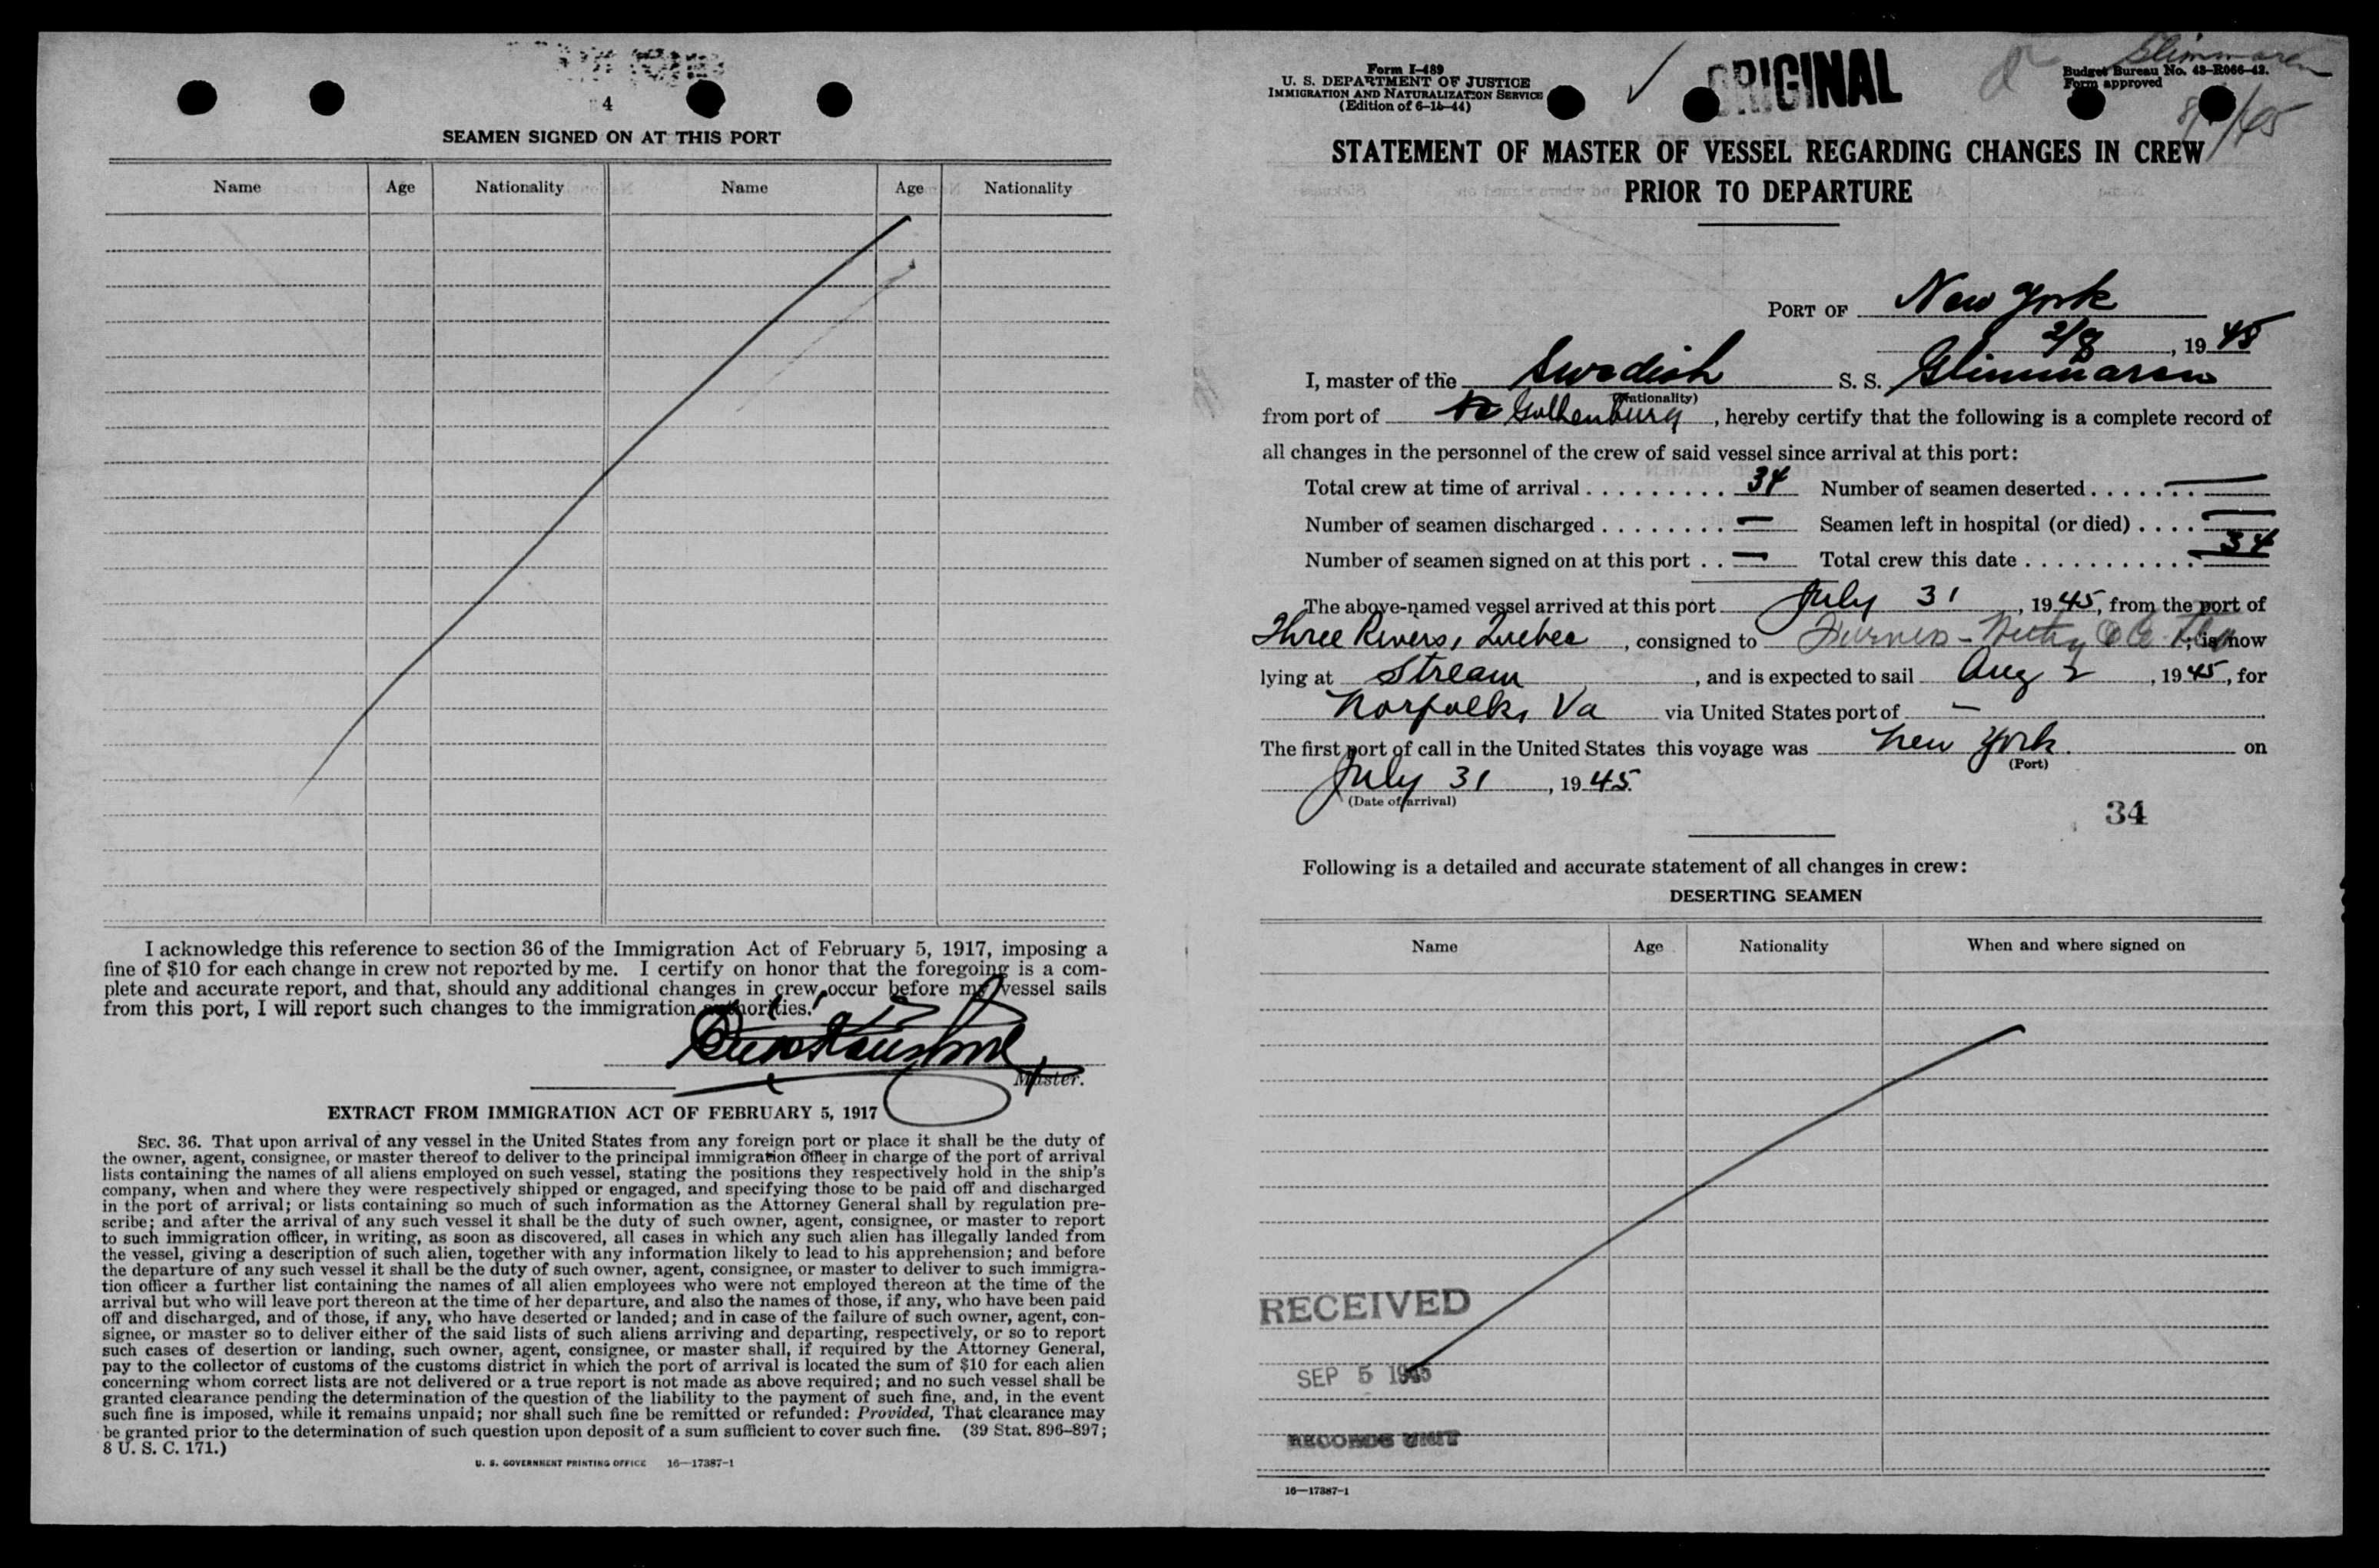 4
SEAMEN SIGNED ON AT THIS PORT
Name Age Nationality Name Age Nationality
I acknowledge this reference to section 36 of the Immigration Act of February 5, 1917, imposing a
fine of $10 for each change in crew not reported by me. I certify on honor that the foregoing is a com-
plete and accurate report, and that, should any additional changes in crew occur before my vessel sails
from this port, I will report such changes to the immigration authorities.
Master.
EXTRACT FROM IMMIGRATION ACT OF FEBRUARY 5, 1917
SEC. 36. That upon arrival of any vessel in the United States from any foreign port or place it shall be the duty of
the owner, agent, consignee, or master thereof to deliver to the principal immigration officer in charge of the port of arrival
lists containing the names of all aliens employed on such vessel, stating the positions they respectively hold in the ship's
company, when and where they were respectively shipped or engaged, and specifying those to be paid off and discharged
in the port of arrival; or lists containing so much of such information as the Attorney General shall by regulation pre-
scribe; and after the arrival of any such vessel it shall be the duty of such owner, agent, consignee, or master to report
to such immigration officer, in writing, as soon as discovered, all cases in which any such alien has illegally landed from
the vessel, giving a description of such alien, together with any information likely to lead to his apprehension; and before
the departure of any such vessel it shall be the duty of such owner, agent, consignee, or master to deliver to such immigra-
tion officer a further list containing the names of all alien employees who were not employed thereon at the time of the
arrival but who will leave port thereon at the time of her departure, and also the names of those, if any, who have been paid
off and discharged, and of those, if any, who have deserted or landed; and in case of the failure of such owner, agent, con-
signee, or master so to deliver either of the said lists of such aliens arriving and departing, respectively, or so to report
such cases of desertion or landing, such owner, agent, consignee, or master shall, if required by the Attorney General,
pay to the collector of customs of the customs district in which the port of arrival is located the sum of $10 for each alien
concerning whom correct lists are not delivered or a true report is not made as above required; and no such vessel shall be
granted clearance pending the determination of the question of the liability to the payment of such fine, and, in the event
such fine is imposed, while it remains unpaid; nor shall such fine be remitted or refunded: Provided, That clearance may
be granted prior to the determination of such question upon deposit of a sum sufficient to cover such fine. (39 Stat. 896–897;
8 U. S. C. 171.)
U. S. GOVERNMENT PRINTING OFFICE 16—17387-1
Form I-489
U. S. DEPARTMENT OF JUSTICE
IMMIGRATION AND NATURALIZATION SERVICE
(Edition of 6-15-44)
ORIGINAL
Glimmaren
Budget Bureau No. 43-R066-42.
Form approved
STATEMENT OF MASTER OF VESSEL REGARDING CHANGES IN CREW
PRIOR TO DEPARTURE
PORT OF New York
2/8, 19 45
I, master of the Swedish S. S. Glimmaren
(Nationality)
from port of Gothenburg, hereby certify that the following is a complete record of
all changes in the personnel of the crew of said vessel since arrival at this port:
Total crew at time of arrival 34 Number of seamen deserted —
Number of seamen discharged — Seamen left in hospital (or died) —
Number of seamen signed on at this port — Total crew this date 34
The above-named vessel arrived at this port July 31, 1945, from the port of
Three Rivers, Quebec, consigned to Furness-Withy & Co. Ltd; is now
lying at Stream, and is expected to sail Aug 2, 1945, for
Norfolk, Va via United States port of —
The first port of call in the United States this voyage was New York. on
(Port)
July 31, 1945.
(Date of arrival)
34
Following is a detailed and accurate statement of all changes in crew:
DESERTING SEAMEN
Name Age Nationality When and where signed on
RECEIVED
SEP 5 1945
RECORDS UNIT
16—17387-1